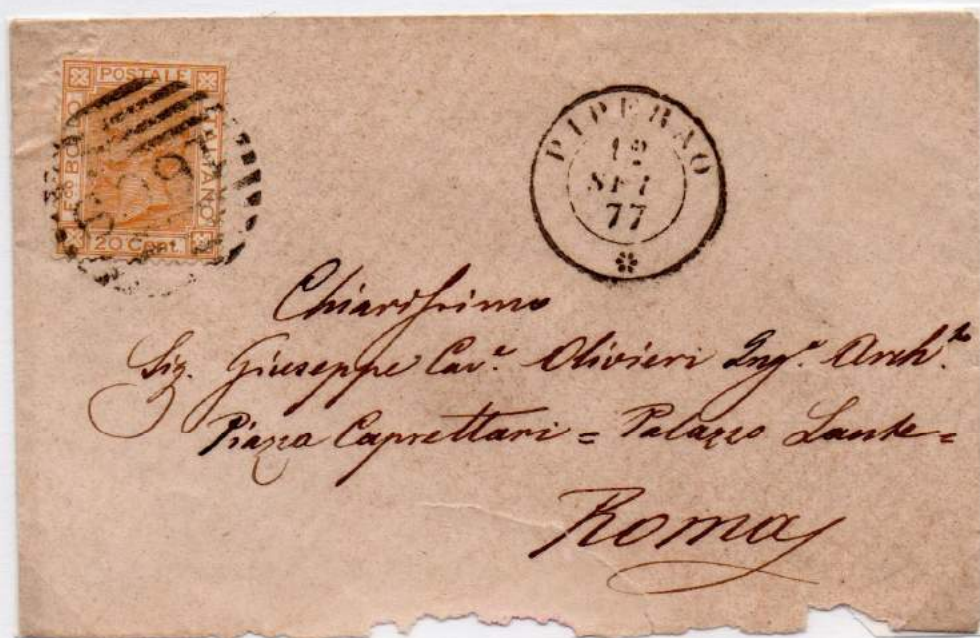 POSTALE
Fco BOLLO
ITALIANO
20 Cent.
PIPERNO
12
SET
77
Chiarissimo
Sig. Giuseppe Cav.e Olivieri Ing.e Arch.to
Piazza Caprettari = Palazzo Lante =
Roma